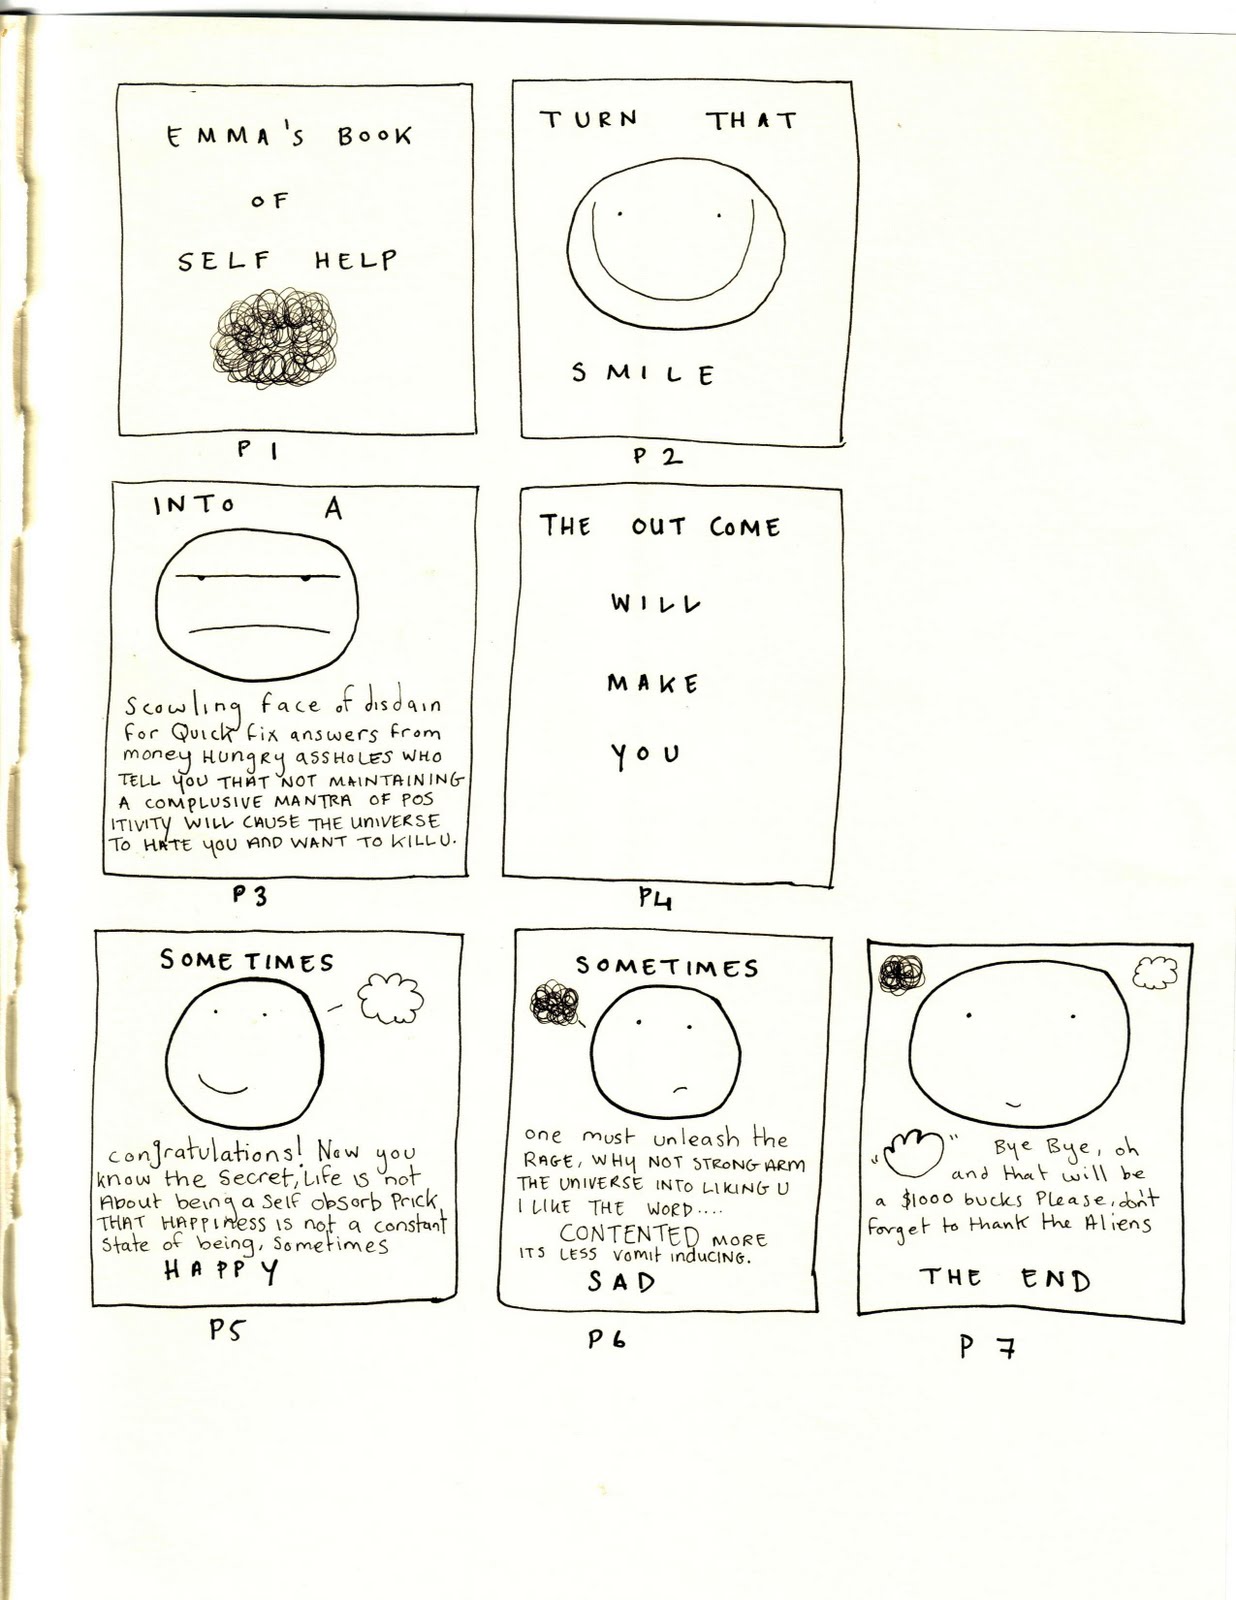 EMMA'S BOOK
OF
SELF HELP
P 1
TURN THAT
SMILE
P 2
INTO A
Scowling face of disdain
for Quick fix answers from
money HUNGRY ASSHOLES WHO
TELL YOU THAT NOT MAINTAINING
A COMPLUSIVE MANTRA OF POS
ITIVITY WILL CAUSE THE UNIVERSE
TO HATE YOU AND WANT TO KILL U.
P 3
THE OUT COME
WILL
MAKE
YOU
P4
SOMETIMES
congratulations! Now you
know the Secret, Life is not
About being a Self obsorb Prick,
THAT HAPPINESS is not a constant
State of being, Sometimes
HAPPY
P5
SOMETIMES
one must unleash the
RAGE, WHY NOT STRONG ARM
THE UNIVERSE INTO LIKING U
I LIKE THE WORD....
CONTENTED MORE
ITS LESS vomit inducing.
SAD
P6
Bye Bye, oh
and that will be
a $1000 bucks Please, don't
forget to thank the Aliens
THE END
P 7